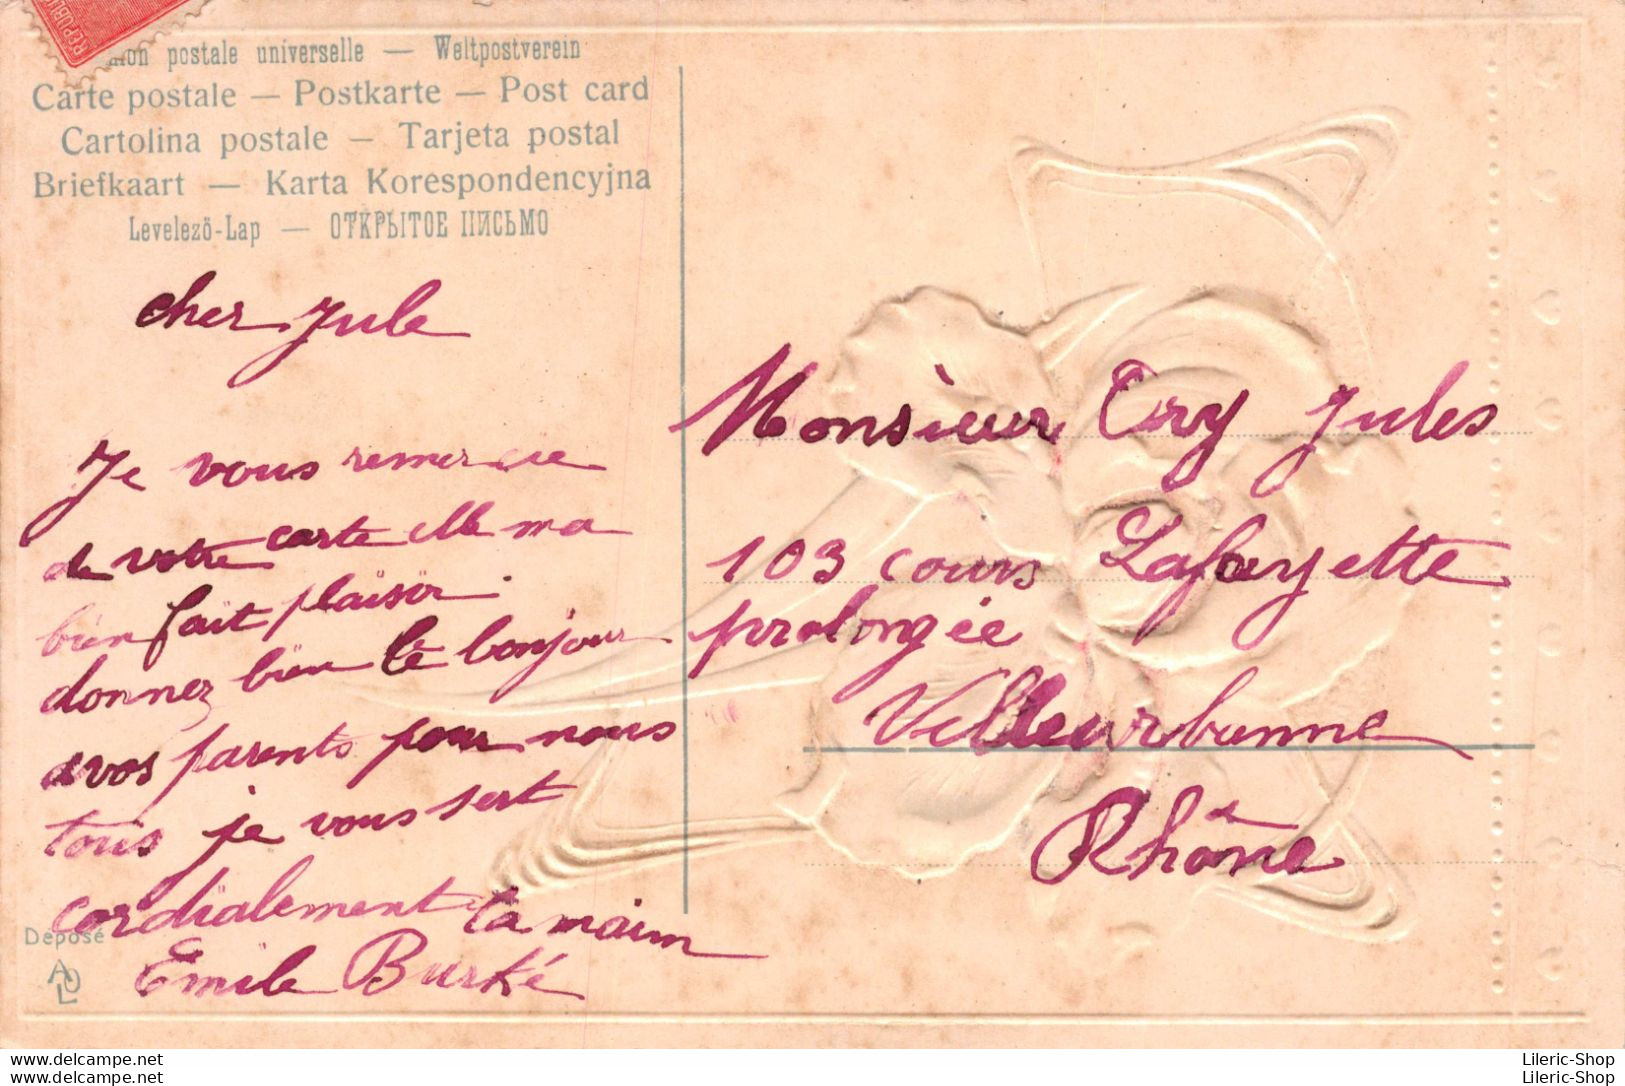 REPUBLI
postale universelle — Weltpostverein
Carte postale — Postkarte — Post card
Cartolina postale — Tarjeta postal
Briefkaart — Karta Korespondencyjna
Levelező-Lap — ОТКРЫТОЕ ПИСЬМО
cher Jule
Je vous remercie
de votre carte elle ma
bien fait plaisir
donnez bien le bonjour
a vos parents pour nous
tous je vous sert
cordialement la main
Emile Burké
Déposé
Monsieur Ory Jules
103 cours Lafayette
prolongée
Villeurbanne
Rhône
www.delcampe.net
www.delcampe.net
Lileric-Shop
Lileric-Shop